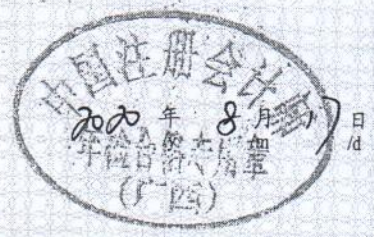 中国注册会计师
2020 年 8 月 17 日
/d
年检合格专用章
(广西)